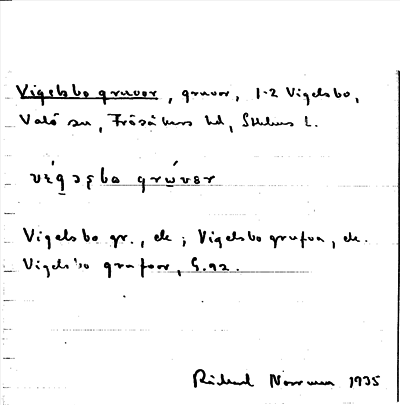 Vigelsbo gruvor, gruvor, 1-2 Vigelsbo,
Valö sn, Frösåkers hd, Sthlms l.
Vigelsbo gr., ek; Vigelsbo grufva, ek.
Vigelsbo grufvor, G.92.
Rickard Norrman 1935